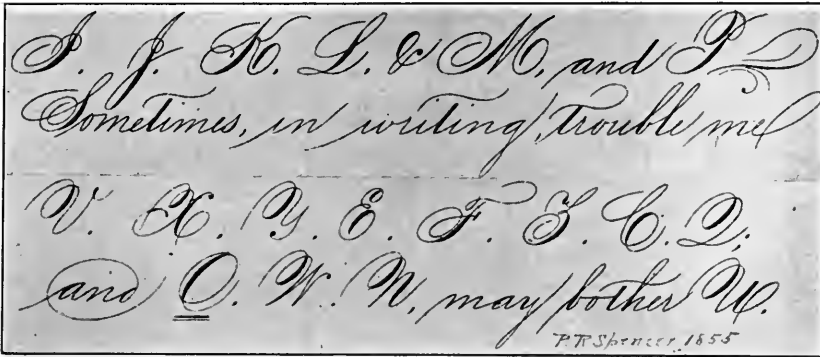 I. J. K. L. & M. and P
Sometimes, in writing, trouble me
V. X. Y. E. F. Z. C. Q.
and O. W. N. may bother U.
P. R. Spencer, 1855